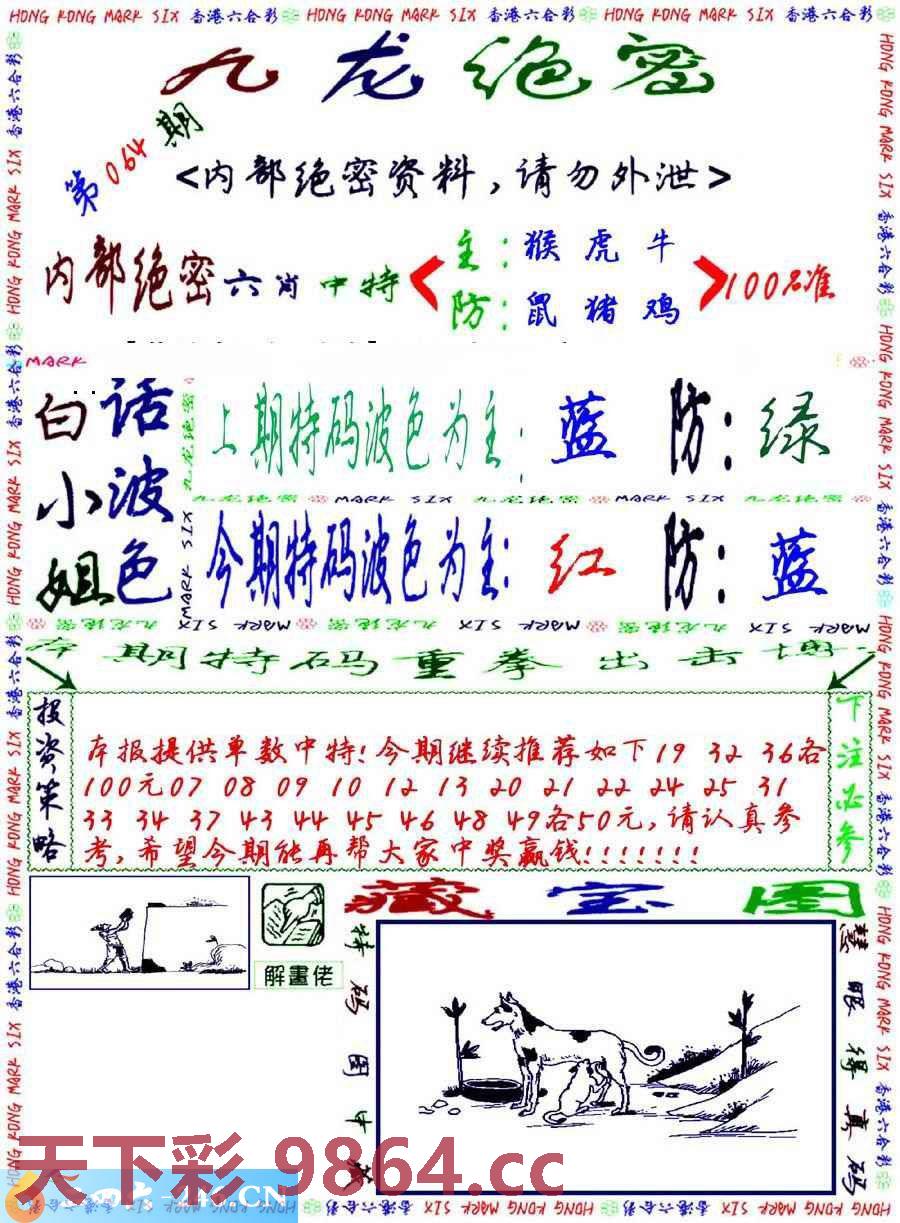 HONG KONG MARK SIX 香港六合彩 HONG KONG MARK SIX 香港六合彩 HONG KONG MARK SIX 香港六合彩
九龙绝密
第064期
<内部绝密资料,请勿外泄>
内部绝密六肖中特
主:猴虎牛
防:鼠猪鸡
100%准
MARK
白话
小波
姐色
上期特码波色为主:蓝 防:绿
九龙绝密 MARK SIX 九龙绝密 MARK SIX 九龙绝密
今期特码波色为主:红 防:蓝
九龙绝密 MARK SIX 九龙绝密 MARK SIX 九龙绝密 MARK SIX
期特码重拳出击
投资策略
本报提供单数中特!今期继续推荐如下19 32 36各
100元07 08 09 10 12 13 20 21 22 24 25 31
33 34 37 43 44 45 46 48 49各50元,请认真参
考,希望今期能再帮大家中奖赢钱!!!!!!!
下注必参
解畫佬
藏宝图
特码图中
慧眼得真码
天下彩.9864.cc
246.CN
HONG KONG MARK SIX 香港六合彩